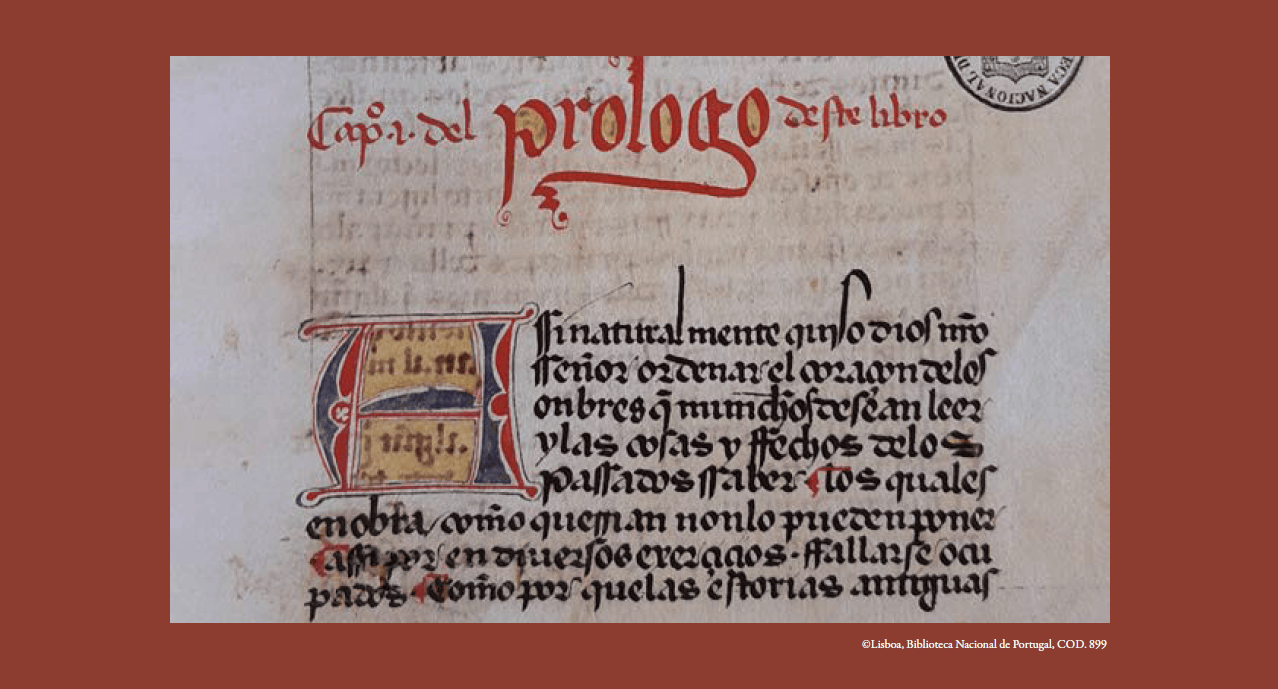 ECA NACIONAL D
Capº. i. del prologo deste libro
Assi natural mente quiso dios nr̃o
sseñor ordenar el coraçon delos
onbres q̃ munchos desean leer
y las cosas y ffechos delos
passados ssaber ¶ los quales
en obra como querrian non lo pueden poner
¶ assi por en diuersos exerçiçios . ffallarse ocu
pados . ¶ Como por que las estorias antiguas
©Lisboa, Biblioteca Nacional de Portugal, COD. 899